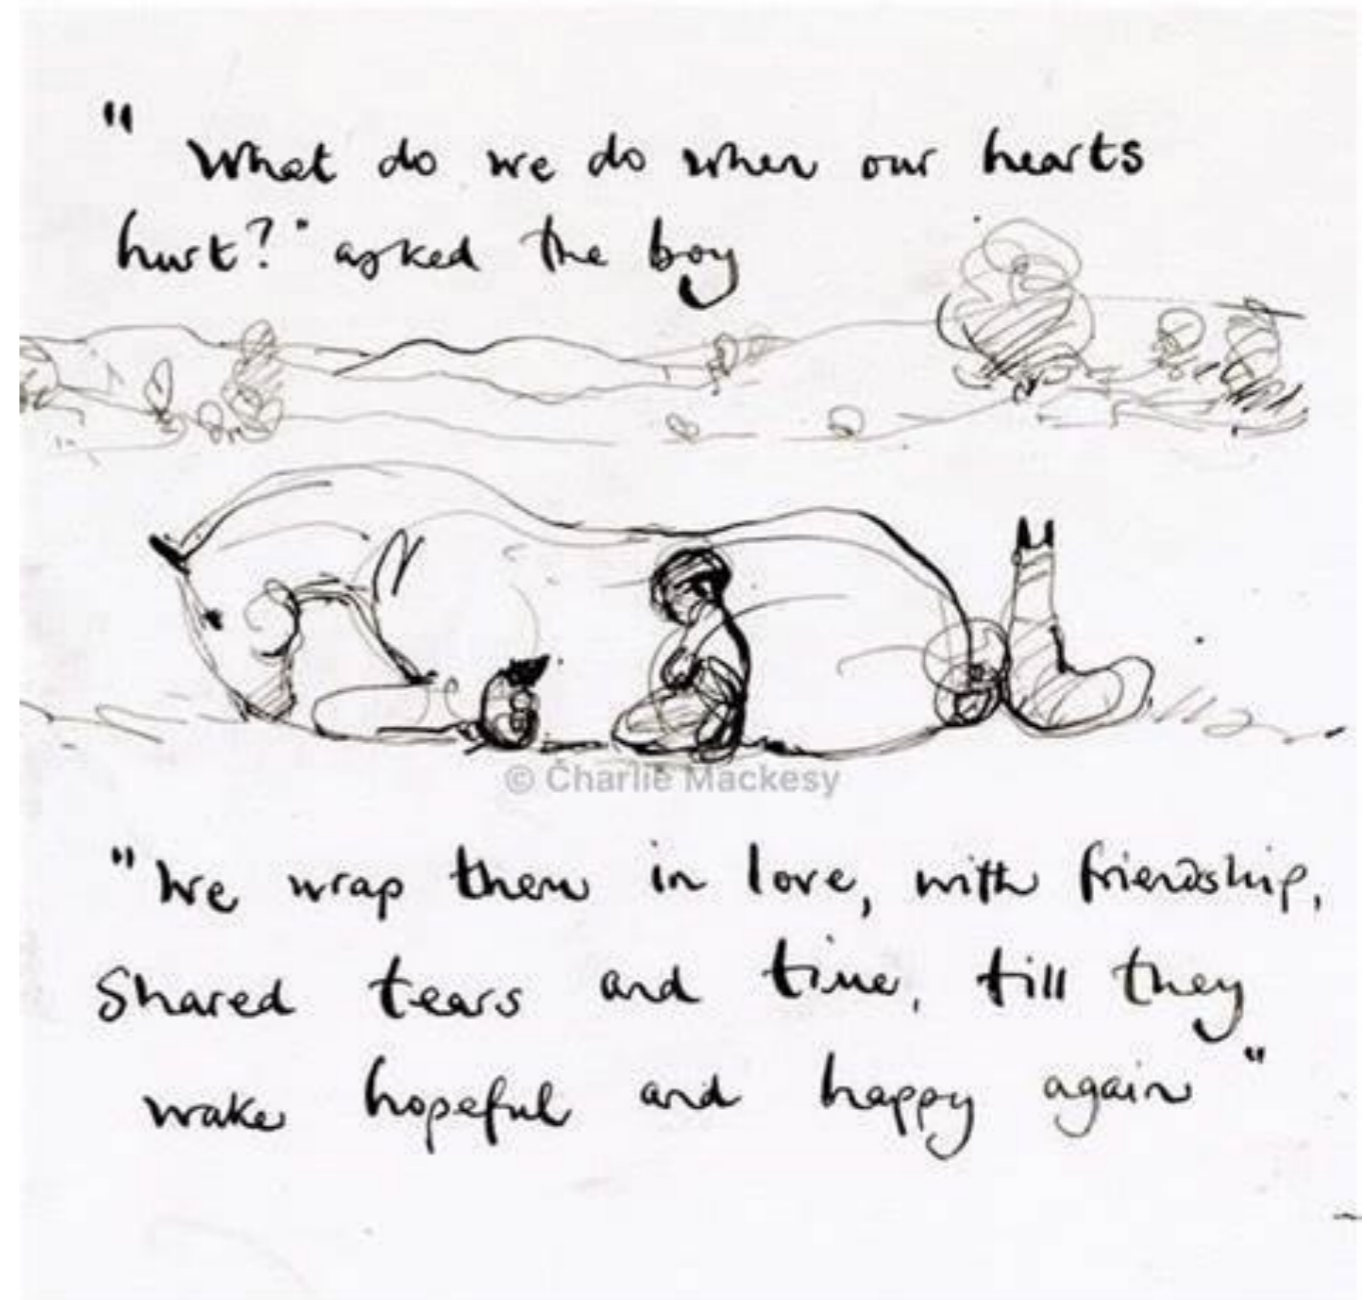 "What do we do when our hearts
hurt?" asked the boy
© Charlie Mackesy
"We wrap them in love, with friendship,
Shared tears and time, till they
wake hopeful and happy again"